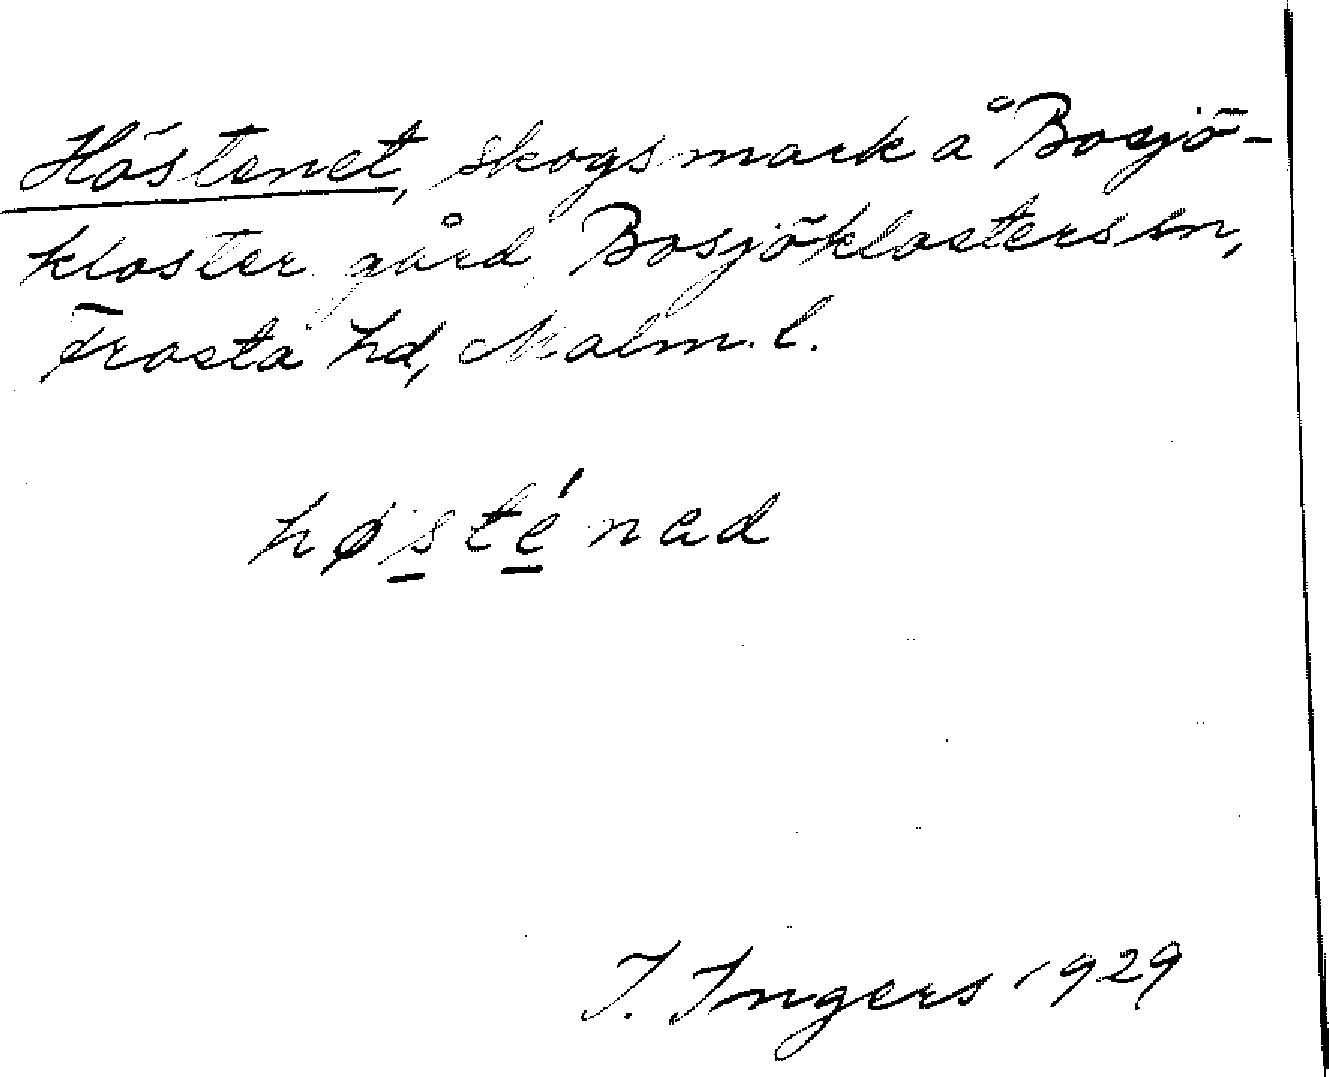 Höstenet, skogsmark å Bosjö-
kloster gård, Bosjöklosters sn,
Frosta hd, Malm. l.
høsténad
I. Ingers 1929